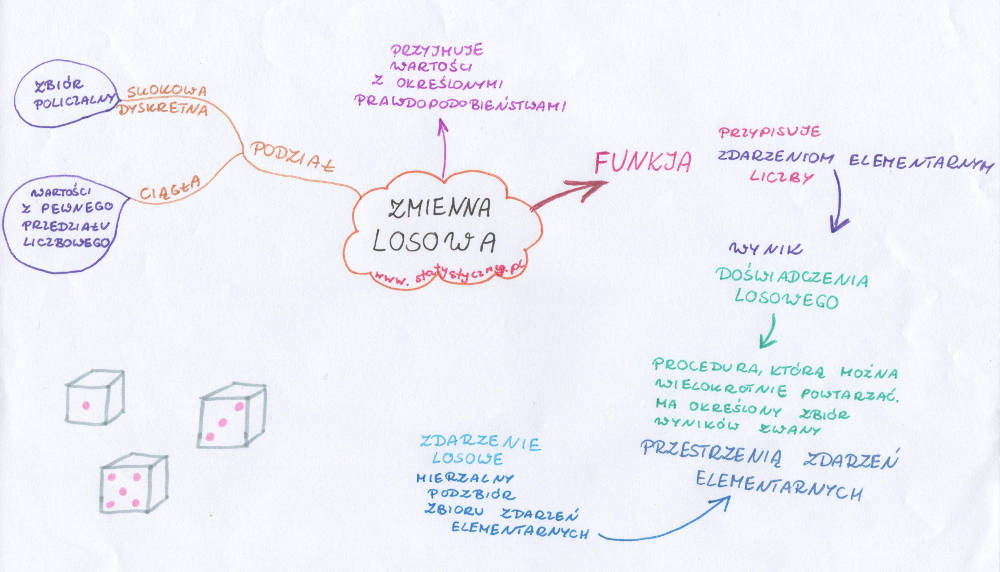 ZMIENNA
LOSOWA
www.statystyczny.pl
PODZIAŁ
SKOKOWA
DYSKRETNA
ZBIÓR
POLICZALNY
CIĄGŁA
WARTOŚCI
Z PEWNEGO
PRZEDZIAŁU
LICZBOWEGO
PRZYJMUJE
WARTOŚCI
Z OKREŚLONYMI
PRAWDOPODOBIEŃSTWAMI
FUNKJA
PRZYPISUJE
ZDARZENIOM ELEMENTARNYM
LICZBY
WYNIK
DOŚWIADCZENIA
LOSOWEGO
PROCEDURA, KTÓRĄ MOŻNA
WIELOKROTNIE POWTARZAĆ.
MA OKREŚLONY ZBIÓR
WYNIKÓW ZWANY
PRZESTRZENIĄ ZDARZEŃ
ELEMENTARNYCH
ZDARZENIE
LOSOWE
MIERZALNY
PODZBIÓR
ZBIORU ZDARZEŃ
ELEMENTARNYCH